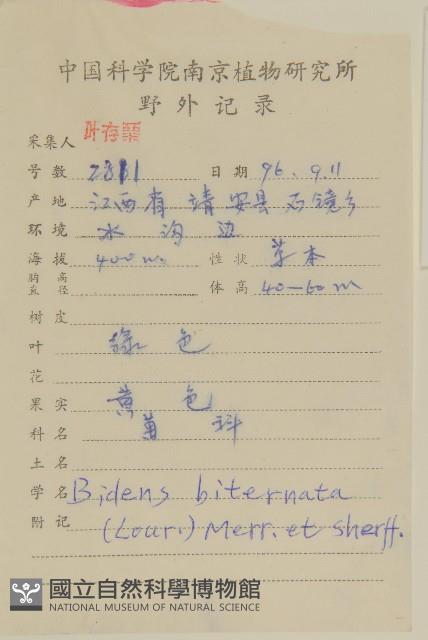 中国科学院南京植物研究所
野外记录
采集人 叶存粟
号数 2881 日期 96.9.11
产地 江西省 靖安县 石镜乡
环境 水沟边
海拔 400m. 性状 草本
胸高直径 体高 40—60m
树皮
叶 绿色
花
果实 黄色
科名 菊科
土名
学名 Bidens biternata
附记 (Lour.) Merr. et Sherff.
國立自然科學博物館
NATIONAL MUSEUM OF NATURAL SCIENCE